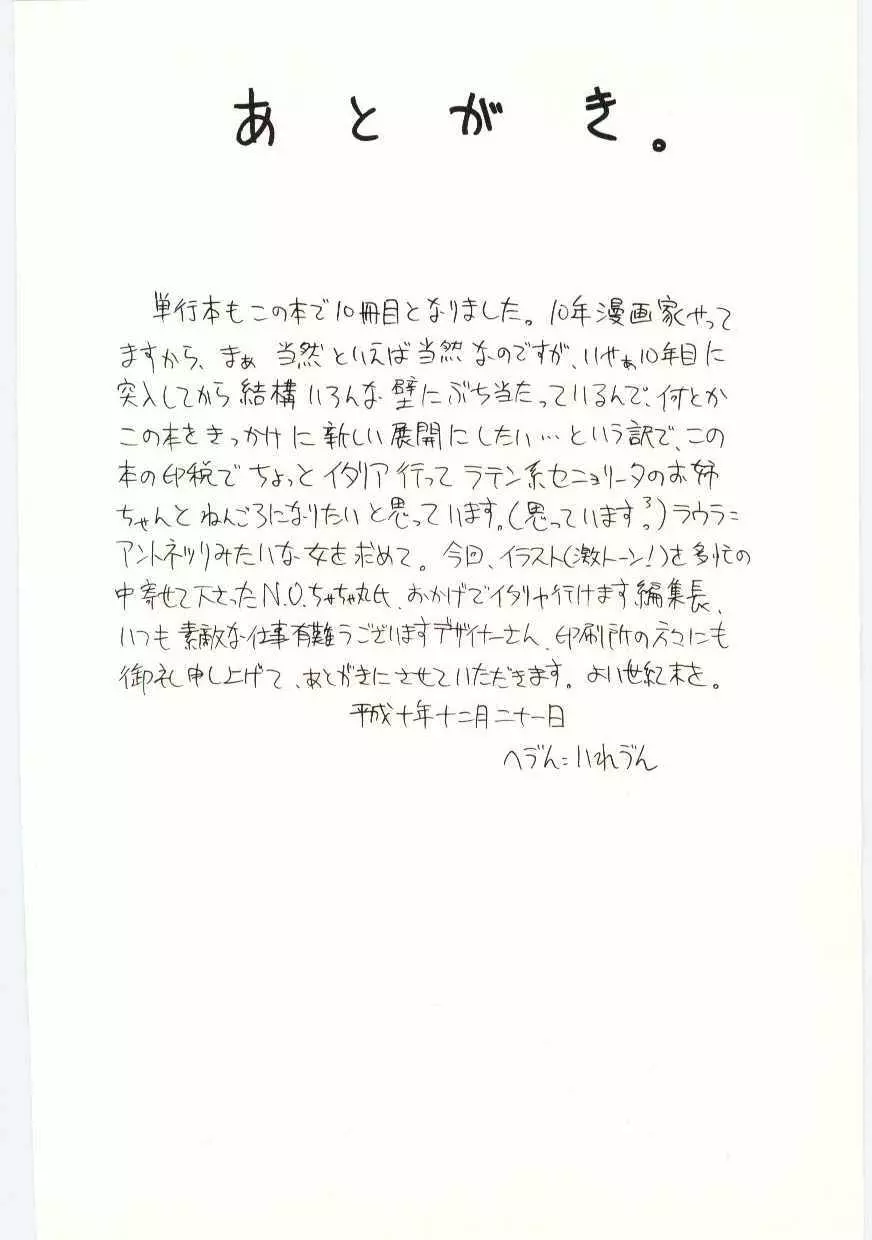 あとがき。
単行本もこの本で10冊目となりました。10年漫画家やって
ますから、まぁ当然といえば当然なのですが、いやぁ10年目に
突入してから結構いろんな壁にぶち当たっているんで、何とか
この本をきっかけに新しい展開にしたい…という訳で、この
本の印税でちょっとイタリア行ってラテン系セニョリータのお姉
ちゃんとねんごろになりたいと思っています。(思っています?)ラウラ=
アントネッリみたいな女を求めて。今回、イラスト(激トーン!)を多忙の
中寄せて下さったN.O.ちゃちゃ丸氏、おかげでイタリヤ行けます編集長、
いつも素敵な仕事有難うございますデザイナーさん、印刷所の方々にも
御礼申し上げて、あとがきにさせていただきます。よい世紀末を。
平成十年十二月二十一日
へづん=はれづん